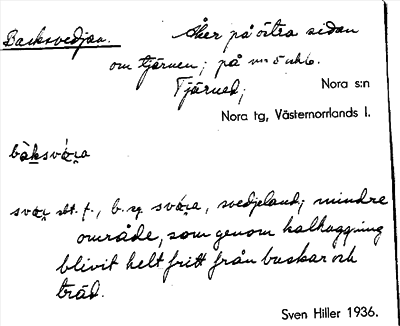 Backsvedjan.
Åker på östra sidan
om tjärnen; på nr 5 och 6.
Tjärned;
Nora s:n
Nora tg, Västernorrlands l.
bàksvó̱ra
svór sbt. f., b. sg. svó̱ra, svedjeland; mindre
område, som genom kalhuggning
blivit helt fritt från buskar och
träd.
Sven Hiller 1936.